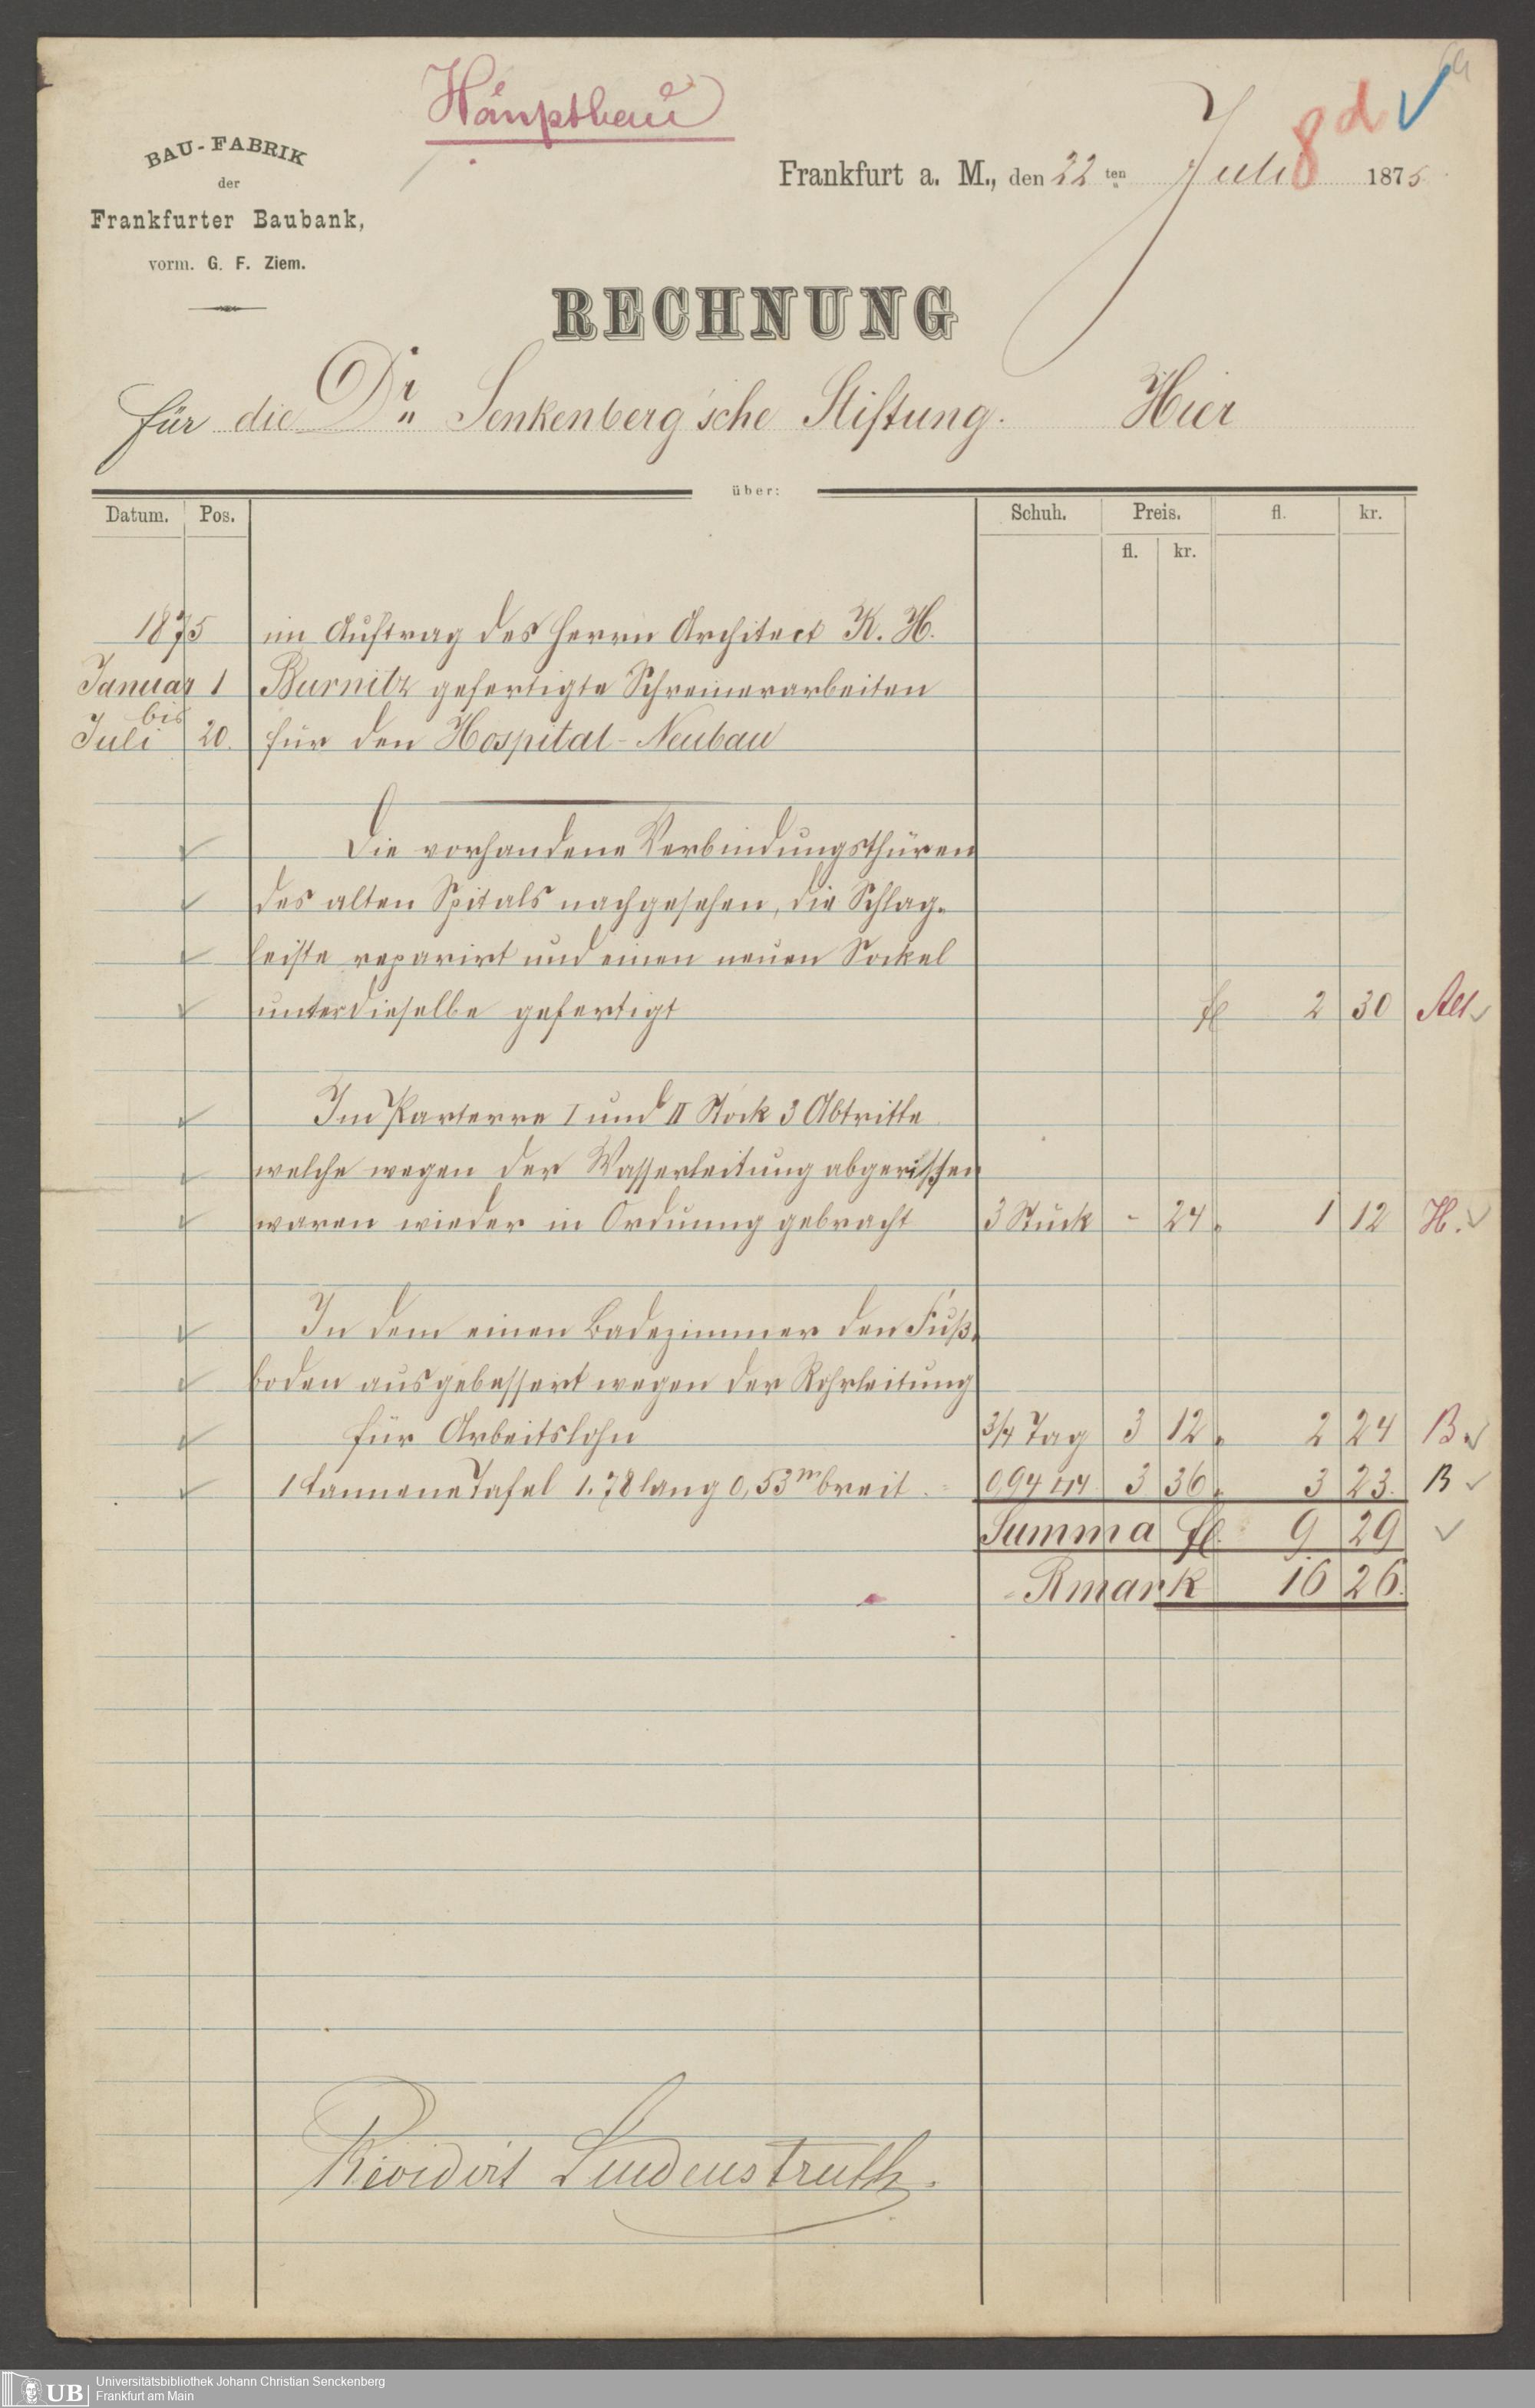 Haŭptbaŭ
8 d
BAU-FABRIK
der
Frankfurter Baubank,
vorm. G. F. Ziem.
Frankfurt a. M., den 22 ten Juli 1875
RECHNUNG
für die Dr. Senkenberg'sche Stiftung. Hier
über:
Datum. Pos. Schuh. Preis. fl. kr.
fl. kr.
1875 im Auftrag des Herrn Architect K. H.
Januar 1 Burnitz gefertigte Schreinerarbeiten
bis
Juli 20. für den Hospital-Neubau
Die vorhandene Verbindungsthüren
des alten Spitals nachgesehen, die Schlag-
leiste reparirt und einen neuen Sockel
unter dieselbe gefertigt fl 2 30
Im Parterre I und II Stock 3 Abtritte
welche wegen der Wasserleitung abgerissen
waren wieder in Ordnung gebracht 3 Stück - 24 1 12 H.
In dem einen Badezimmer den Fuß-
boden ausgebessert wegen der Rohrleitung
für Arbeitslohn 3/4 Tag 3 12 2 24 B
1 tannene Tafel 1.78 lang 0,53 m breit = 0,94 □M 3 36 3 23. B
Summa fl. 9 29
Rmark 16 26.
Revidirt Lindenstruth.
Universitätsbibliothek Johann Christian Senckenberg
Frankfurt am Main
UB